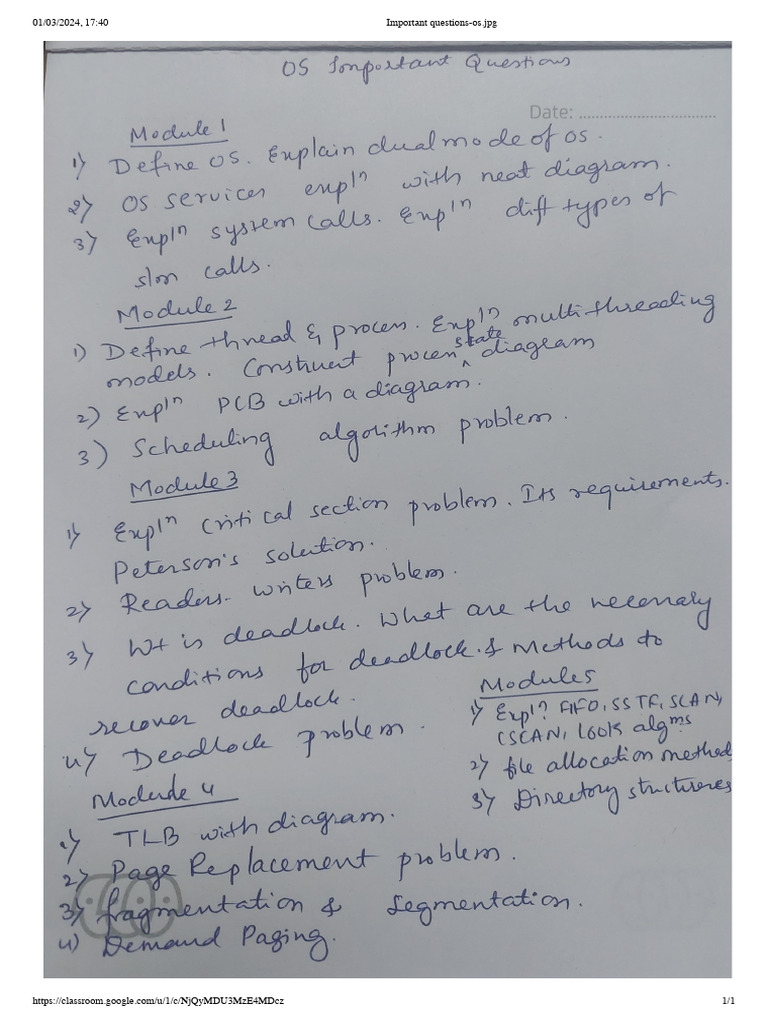 01/03/2024, 17:40 Important questions-os.jpg
OS Important Questions
Date: ................................
Module 1
1) Define OS. Explain dual mode of OS.
2) OS services expln with neat diagram.
3) Expln system calls. Expln diff types of
s/m calls.
Module 2
1) Define thread & process. Expln multithreading
models. Construct process state diagram
2) Expln PCB with a diagram.
3) Scheduling algorithm problem.
Module 3
1) Expln critical section problem. Its requirements.
Peterson's solution.
2) Readers-writers problem.
3) Wt is deadlock. What are the necessary
conditions for deadlock & Methods to
recover deadlock.
4) Deadlock problem.
Module 4
1) TLB with diagram.
2) Page Replacement problem.
3) fragmentation & Segmentation.
4) Demand Paging.
Module5
1) Expln FIFO, SSTF, SCAN,
CSCAN, LOOK algms
2) file allocation methods
3) Directory structures
https://classroom.google.com/u/1/c/NjQyMDU3MzE4MDcz 1/1